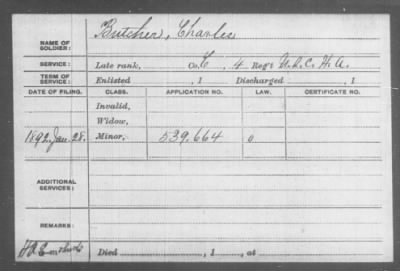 Butcher, Charles
NAME OF SOLDIER:
SERVICE: Late rank, Co. E, 4 Reg't U.S.C.H.A.
TERM OF SERVICE: Enlisted , 1 Discharged , 1
DATE OF FILING. CLASS. APPLICATION NO. LAW. CERTIFICATE NO.
Invalid,
Widow,
1892, Jan. 28. Minor, 539.664 0
ADDITIONAL SERVICES:
REMARKS:
Died , 1 , at